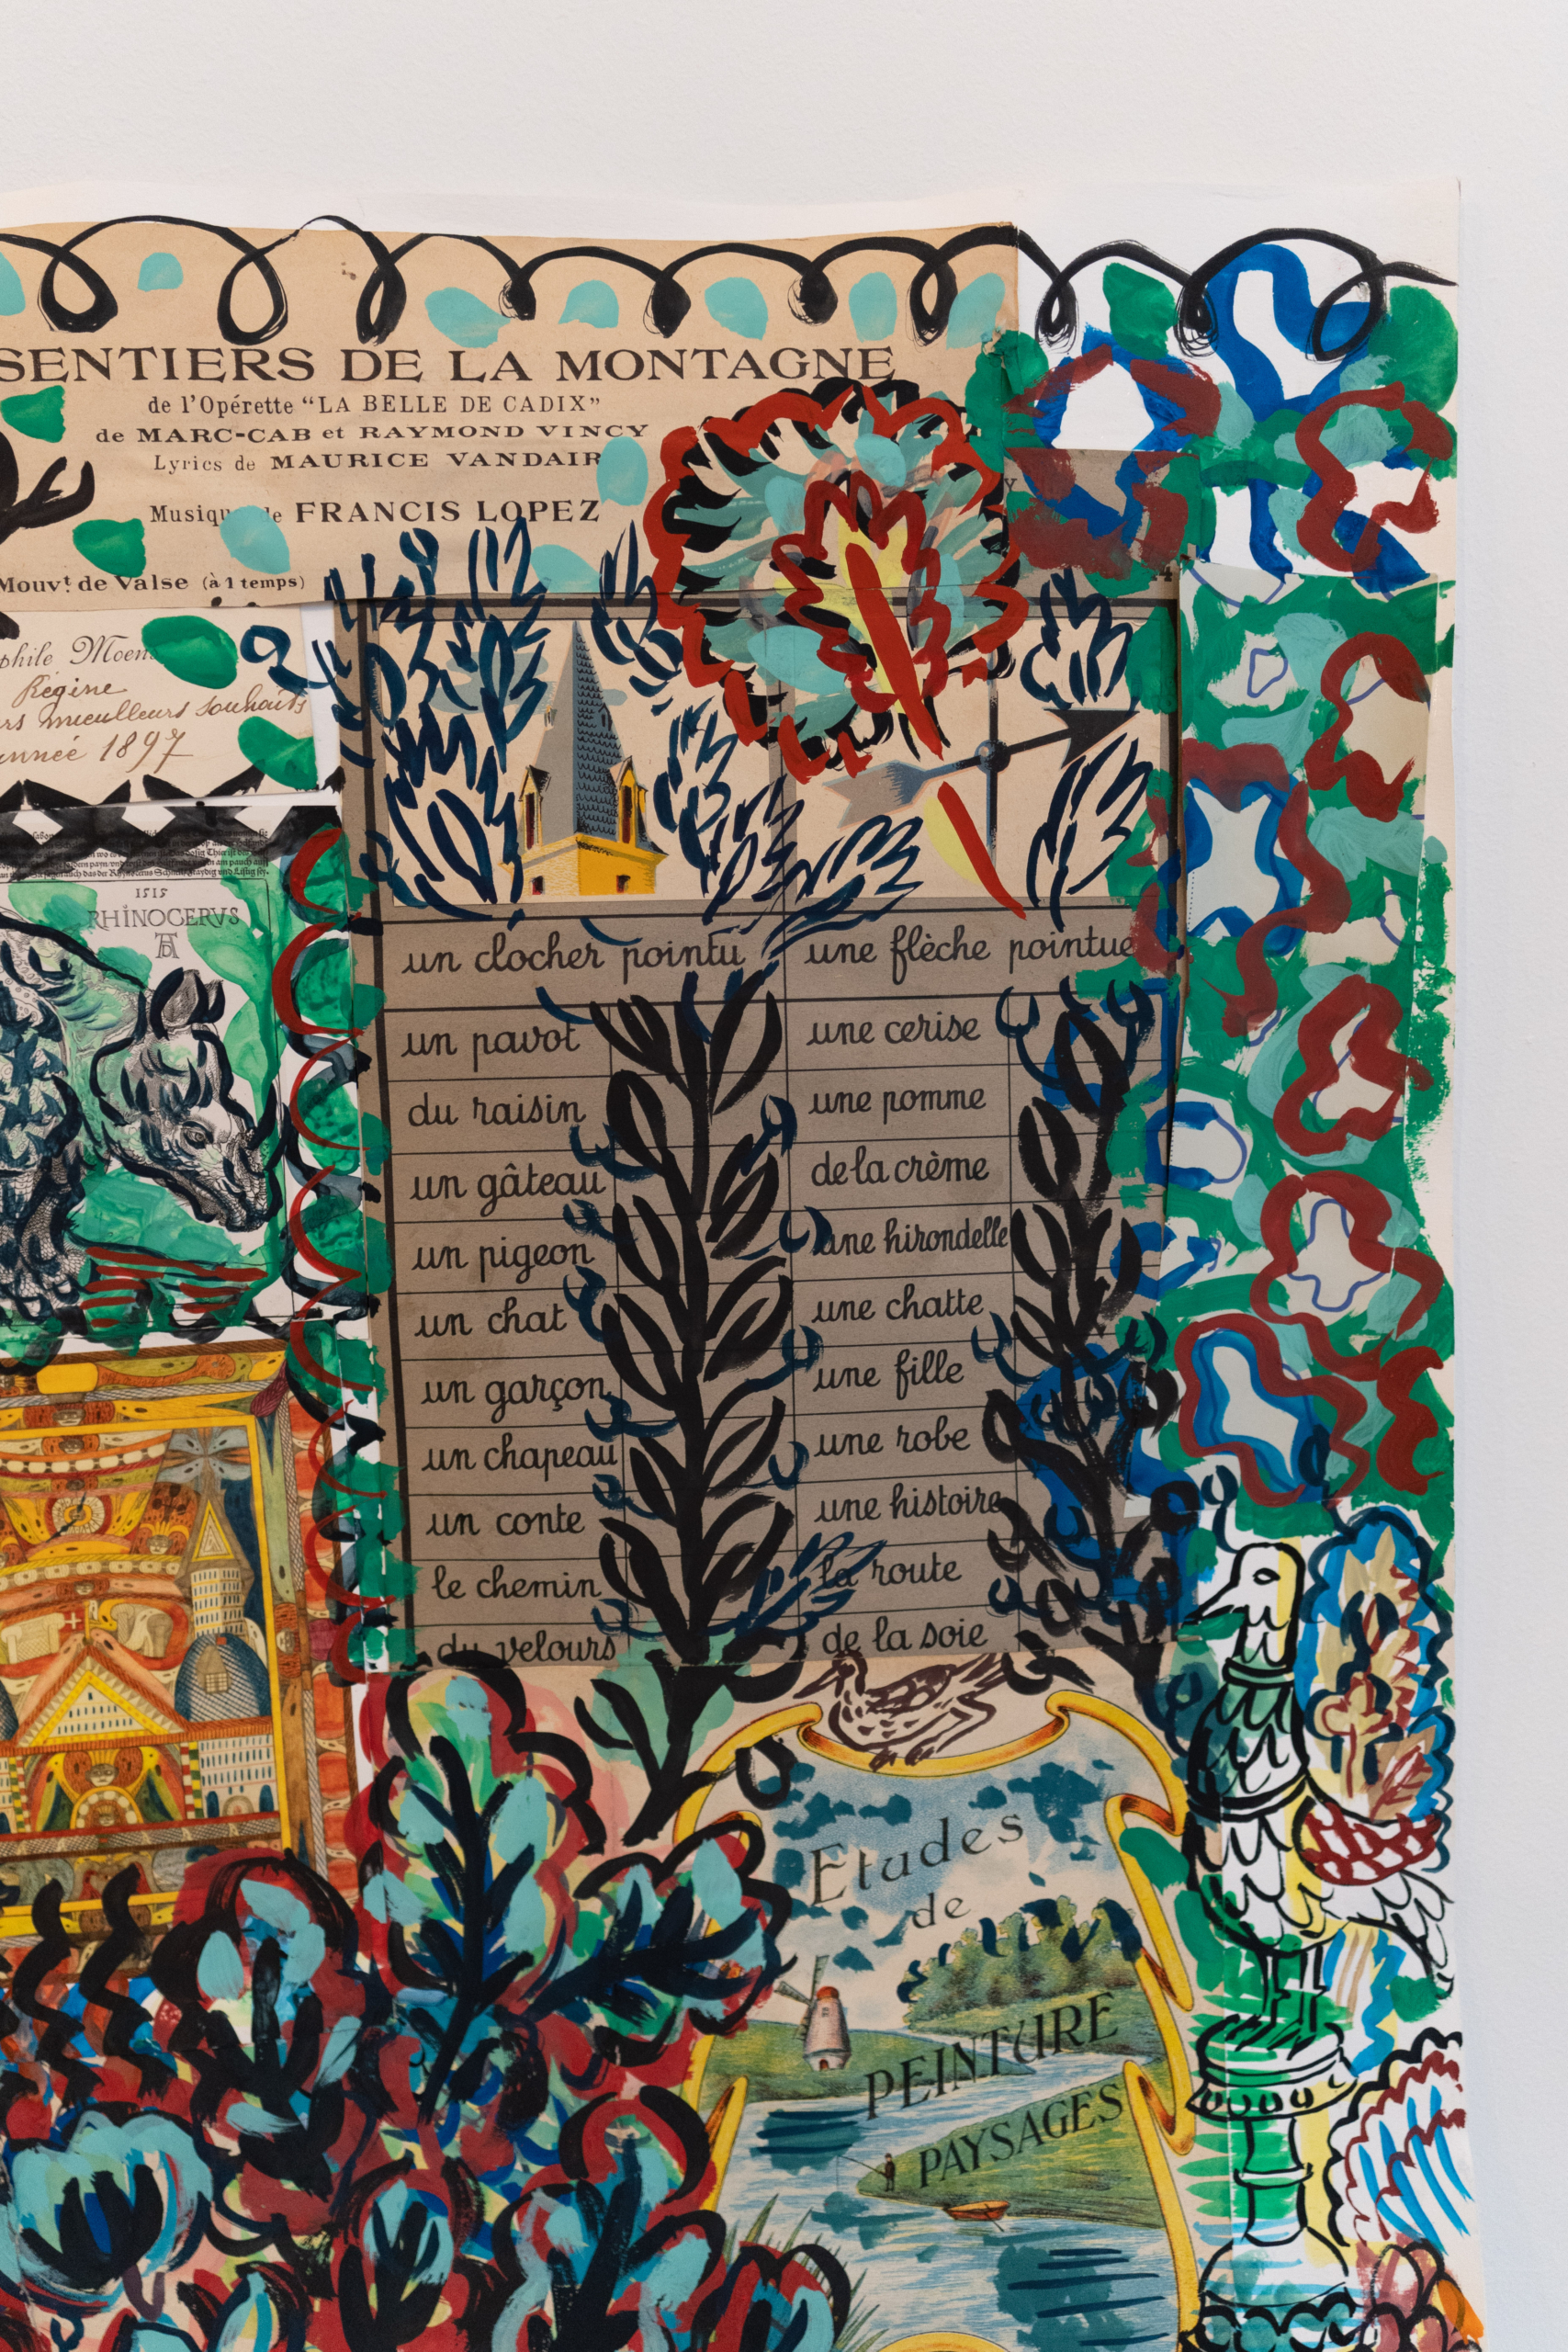 SENTIERS DE LA MONTAGNE
de l'Opérette "LA BELLE DE CADIX"
de MARC-CAB et RAYMOND VINCY
Lyrics de MAURICE VANDAIR
Musique de FRANCIS LOPEZ
Mouvt de Valse (à 1 temps)
Régine
souhaits
année 1897
1515
RHINOCERVS
un clocher pointu
une flèche pointue
un pavot
une cerise
du raisin
une pomme
un gâteau
de la crème
un pigeon
une hirondelle
un chat
une chatte
un garçon
une fille
un chapeau
une robe
un conte
une histoire
le chemin
la route
du velours
de la soie
Etudes
de
PEINTURE
PAYSAGES